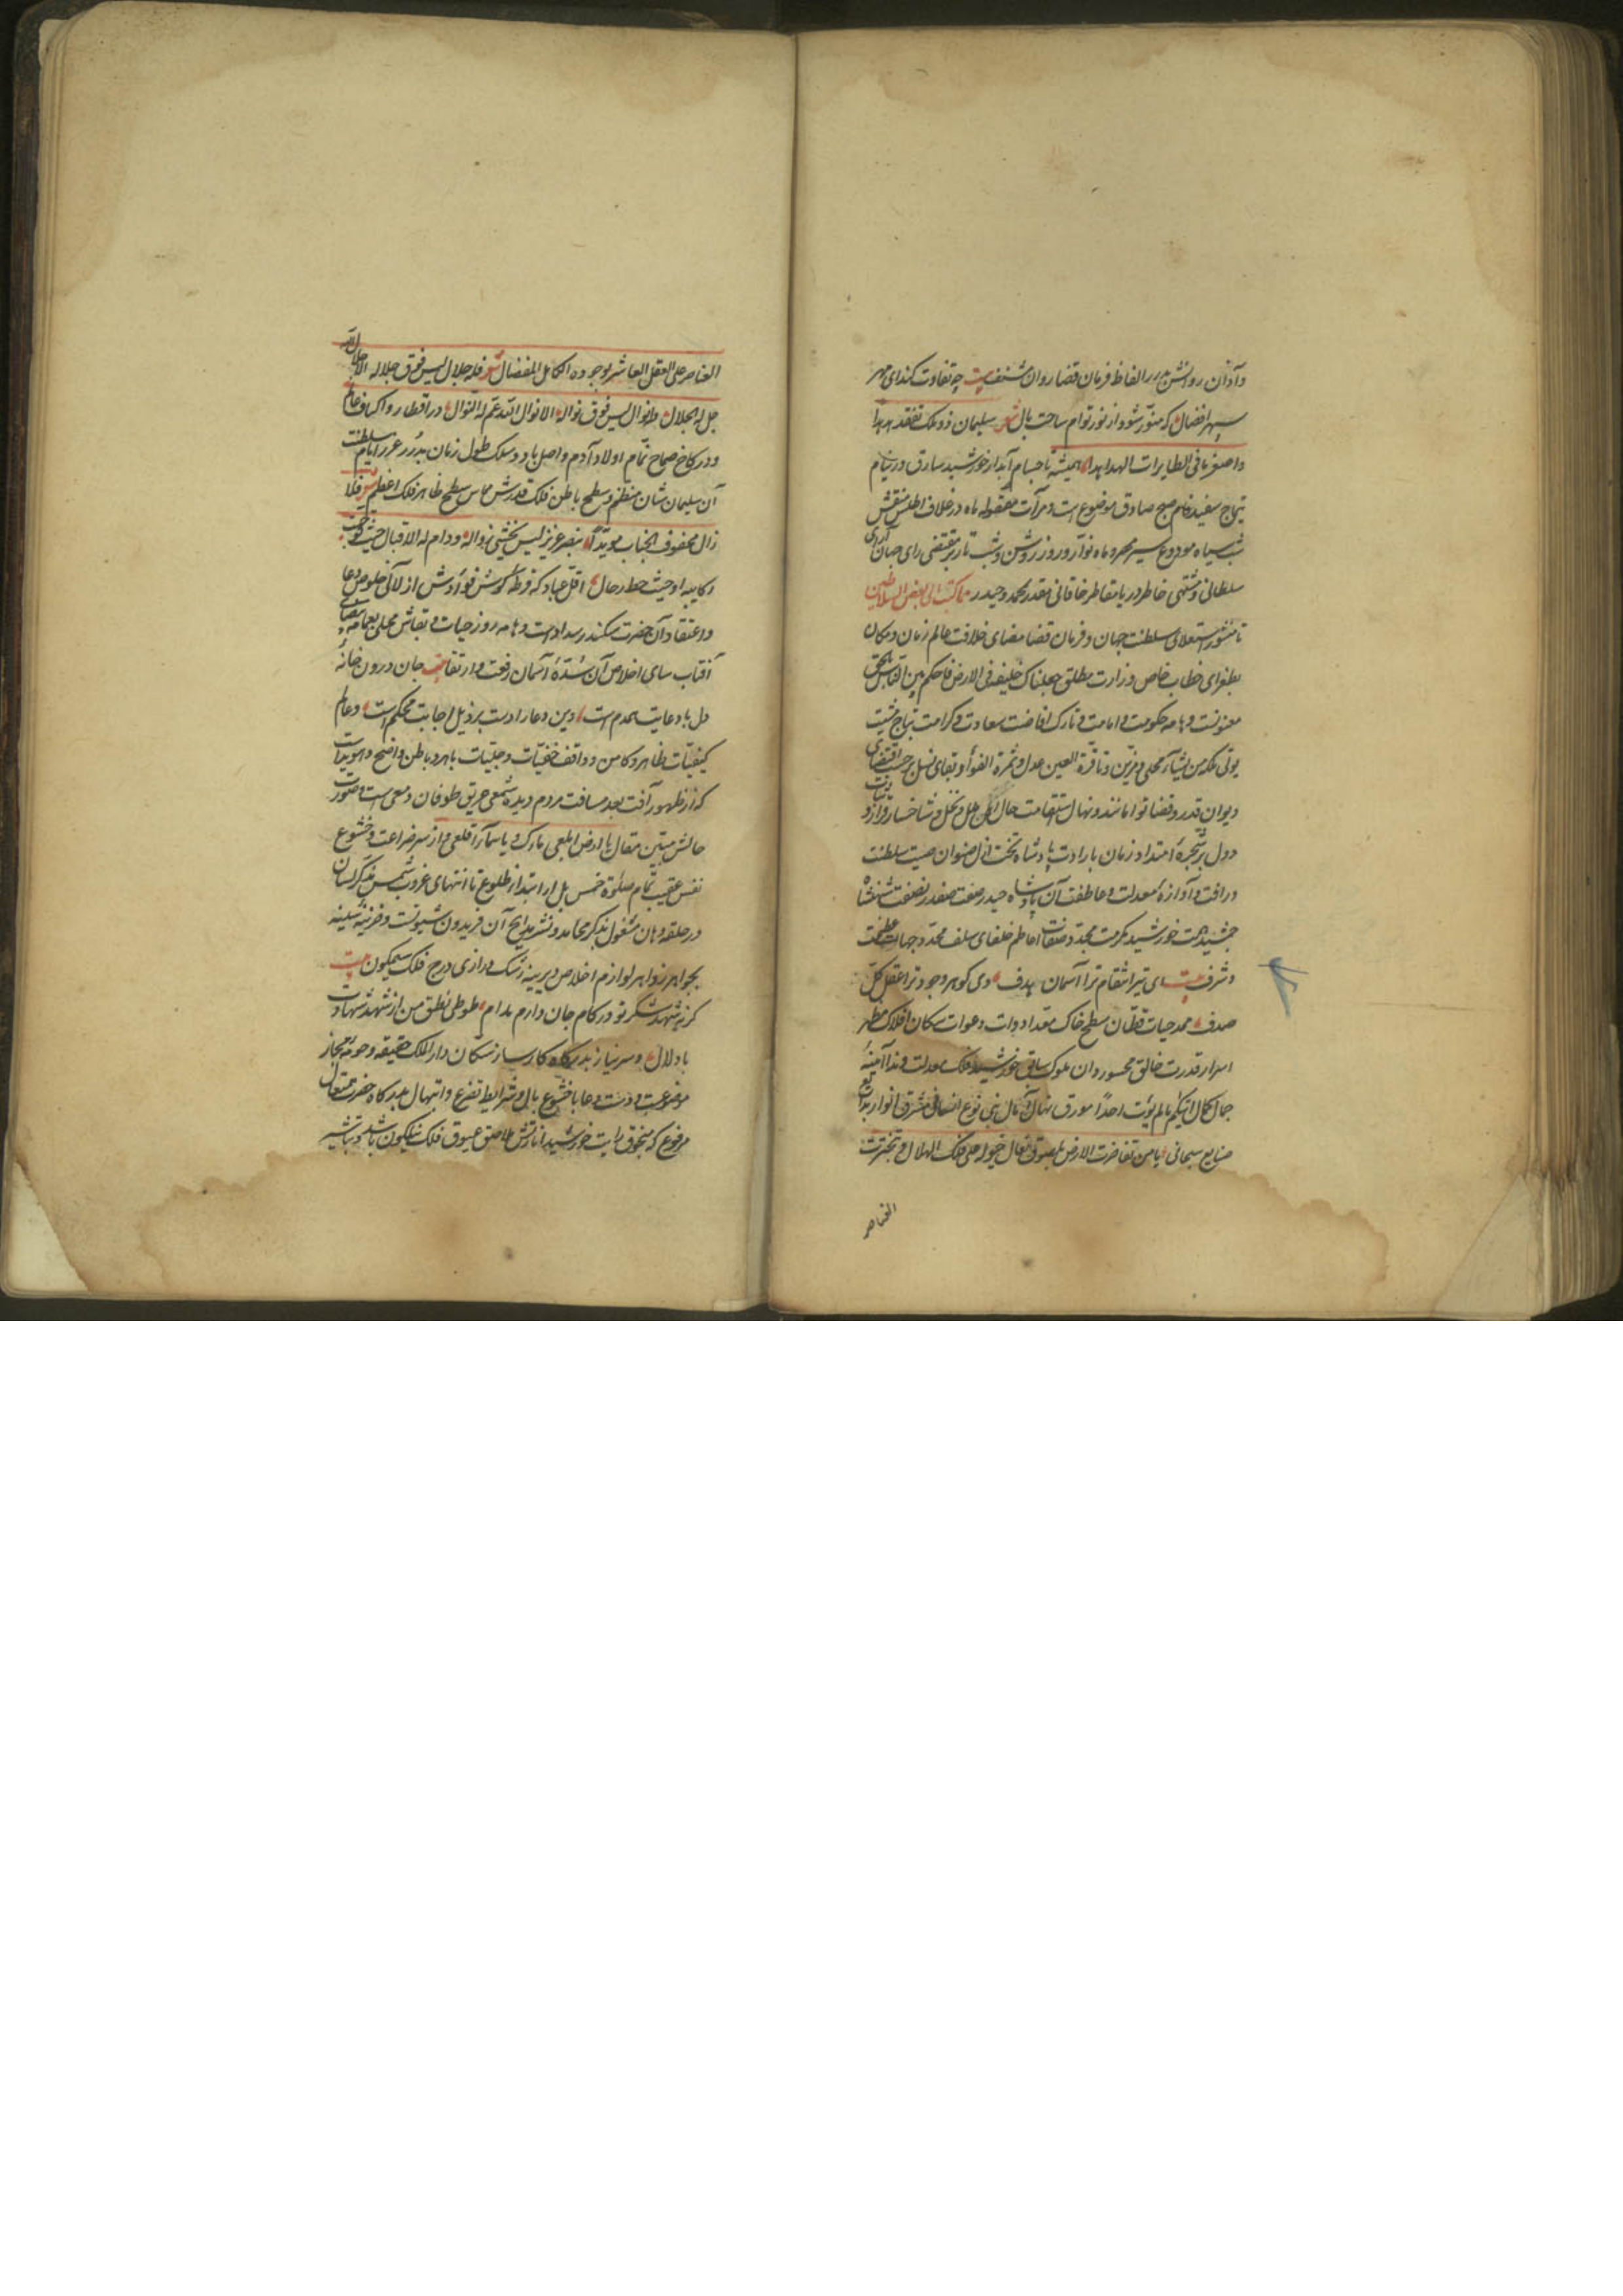 وآذان روانش بدرر الفاظ فرمان قضا روان مشنف بیت چه تفاوت کند ای مهر
سپهر افضال که منوّر شود از نور توام ساحت بال شعر سلیمان ذو ملک تفقد هدهدا
واصغر ما فی الطایرات الهداهدا همیشه تا حسام آبدار خورشید سارق در نیام
تیماج سفیدفام صبح صادق موضوع است ومرآت مصقوله ماه در غلاف اطلس منقش
شب سیاه مودوع سیر مهر و ماه نوآر و روز روشن وشب تار بر مقتضی رای جهان آرای
سلطانی ومشتهی خاطر دریا مقاطر خاقانی مقدر بمحمد وحیدر مما کتب الی بعض السلاطین
تا منشور استعلای سلطنت جهان و فرمان قضا مضای خلافت عالم زمان ومکان
بطغرای خطاب خاص وزارت مطلق جعلناک خلیفة فی الارض فاحکم بین الناس بالحق
معنونست وهامه حکومت وامامت وتارک افاضت سعادت وکرامت بتاج مشیت
یؤتی ملکه من یشآء محلی ومزین وتا قرة العین عدل وثمرة الفؤاد بقای نسل بر حسب اقتضای
دیوان قدر وقضا توامانند ونهال استقامت حال اهل ملل ونحل وشاخسار قرار ودیانت
دول بر شجرهٔ امتداد زمان بارادت پادشاه تخت ازل صنوان صیت سلطنت
ورافت وآوازهٔ معدلت وعاطفت آن پادشاه حیدر صفت صفدر نصفت شهنشاه
جمشید همت خورشید مکرمت مجدد صفات اعاظم خلفای سلف محدد جهات عظمت
وشرف بیت ای تیر انتقام ترا آسمان هدف وی کوهر وجود ترا عقل کل
صدف ممد حیات قطّان سطح خاک مقعد ادوات دعوات سکان افلاک مظهر
اسرار قدرت خالق محسود روان ملوک سابق خورشید فلک معدلت وندا آمنهٔ
جمال کمال اتیکم ما لم یؤت احدًا مورق نهال آمال بنی نوع انسانی مشرق انوار بدایع
صنایع سبحانی یا من تفاخرت الارض بلصوق نعال خیوله علی فلک الهلال وتبخترت
العناصر
العناصر علی العقل العاشر بوجوده الکامل المفضال شعر فله جلال لیس فوق جلاله الا جلال الله
جل له الجلال وله نوال لیس فوق نواله الا نوال الله عم له النوال در اقطار واکناف عالم
ودر کاخ صماخ تمام اولاد آدم واصل باد وسلک طول زمان بدرر غرر ایام سلطنت
آن سلیمان شان منظم وسطح باطن فلک قدرش مماس سطح ظاهر فلک اعظم شعر فلا
زال محفوف الجناب مویدًا بنصر عزیز لیس یخشی زواله ودام له الاقبال حیث توجهت
رکایبه او حیث حط رحاله اقل عباد که قرطهٔ کوش فؤادش از لآلی خلوص دعا
واعتقاد آن حضرت سکندر سداد است وهامه روز حیات وبقاش محلی بعمامهٔ بیضای
آفتاب سای اخلاص آن سدهٔ آسمان رفعت وارتفاع بیت جان درون خانهٔ
دل با دعایت همدم است وین دعا را دست بر ذیل اجابت محکم است وعالم
کیفیات ظاهر وکامن و واقف خفیّات وجلیّات باهر وباطن واضح وهویداست
که از ظهور آفت بعد مسافت مردم دیده شمعی حریق طوفان دمعی است وصورت
حالش مبین مقال یا ارض ابلعی ماءک ویا سمآء اقلعی واز سر ضراعت وخشوع
نفس عقیب تمام صلوة خمس بل از ابتدا طلوع تا انتهای غروب شمس بذکر لسان
در حلقه دهان مشغول بذکر محامد ونشر مدایح آن فریدون شیونست وخزینهٔ سینه
بجواهر زواهر لوازم اخلاص دیرینه رشک دراری درج فلک سیمکون بیت
کر نه شهد شکر تو در کام جان دارم مدام طوطی نطق من از شهد شهادت
باد لال وسر نیاز بدرکاه کارساز سکان دار الملک حقیقه وحومهٔ مجاز
موضوعست ودست دعا با خشوع بال وشرایط تضرع وابتهال بدرکاه حضرت متعال
مرفوع که منجوق رایت خورشید انارتش ملاصق عیوق فلک نیلکون باشد وتباشیر